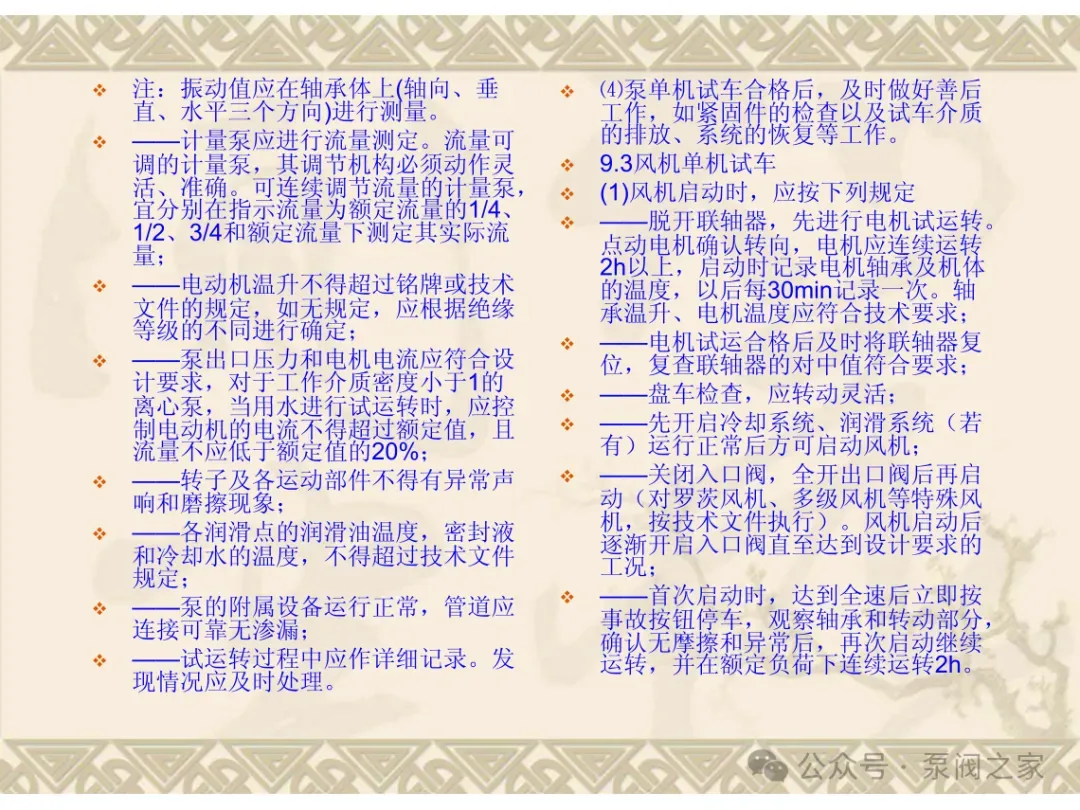 注：振动值应在轴承体上(轴向、垂
直、水平三个方向)进行测量。
——计量泵应进行流量测定。流量可
调的计量泵，其调节机构必须动作灵
活、准确。可连续调节流量的计量泵，
宜分别在指示流量为额定流量的1/4、
1/2、3/4和额定流量下测定其实际流
量；
——电动机温升不得超过铭牌或技术
文件的规定，如无规定，应根据绝缘
等级的不同进行确定；
——泵出口压力和电机电流应符合设
计要求，对于工作介质密度小于1的
离心泵，当用水进行试运转时，应控
制电动机的电流不得超过额定值，且
流量不应低于额定值的20%；
——转子及各运动部件不得有异常声
响和磨擦现象；
——各润滑点的润滑油温度，密封液
和冷却水的温度，不得超过技术文件
规定；
——泵的附属设备运行正常，管道应
连接可靠无渗漏；
——试运转过程中应作详细记录。发
现情况应及时处理。
⑷泵单机试车合格后，及时做好善后
工作，如紧固件的检查以及试车介质
的排放、系统的恢复等工作。
9.3风机单机试车
(1)风机启动时，应按下列规定
——脱开联轴器，先进行电机试运转。
点动电机确认转向，电机应连续运转
2h以上，启动时记录电机轴承及机体
的温度，以后每30min记录一次。轴
承温升、电机温度应符合技术要求；
——电机试运合格后及时将联轴器复
位，复查联轴器的对中值符合要求；
——盘车检查，应转动灵活；
——先开启冷却系统、润滑系统（若
有）运行正常后方可启动风机；
——关闭入口阀，全开出口阀后再启
动（对罗茨风机、多级风机等特殊风
机，按技术文件执行）。风机启动后
逐渐开启入口阀直至达到设计要求的
工况；
——首次启动时，达到全速后立即按
事故按钮停车，观察轴承和转动部分，
确认无摩擦和异常后，再次启动继续
运转，并在额定负荷下连续运转2h。
公众号·泵阀之家